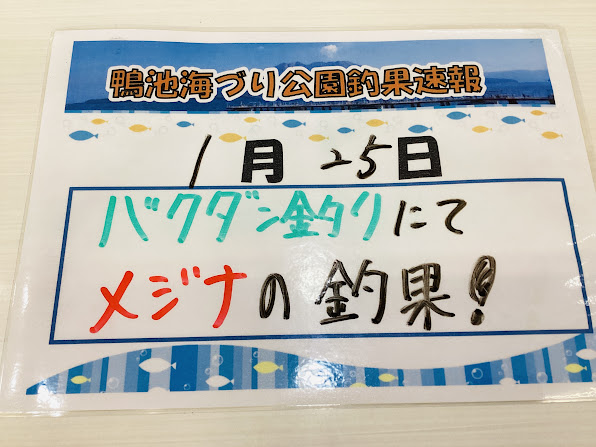 鴨池海づり公園釣果速報
1月25日
バクダン釣りにて
メジナの釣果!